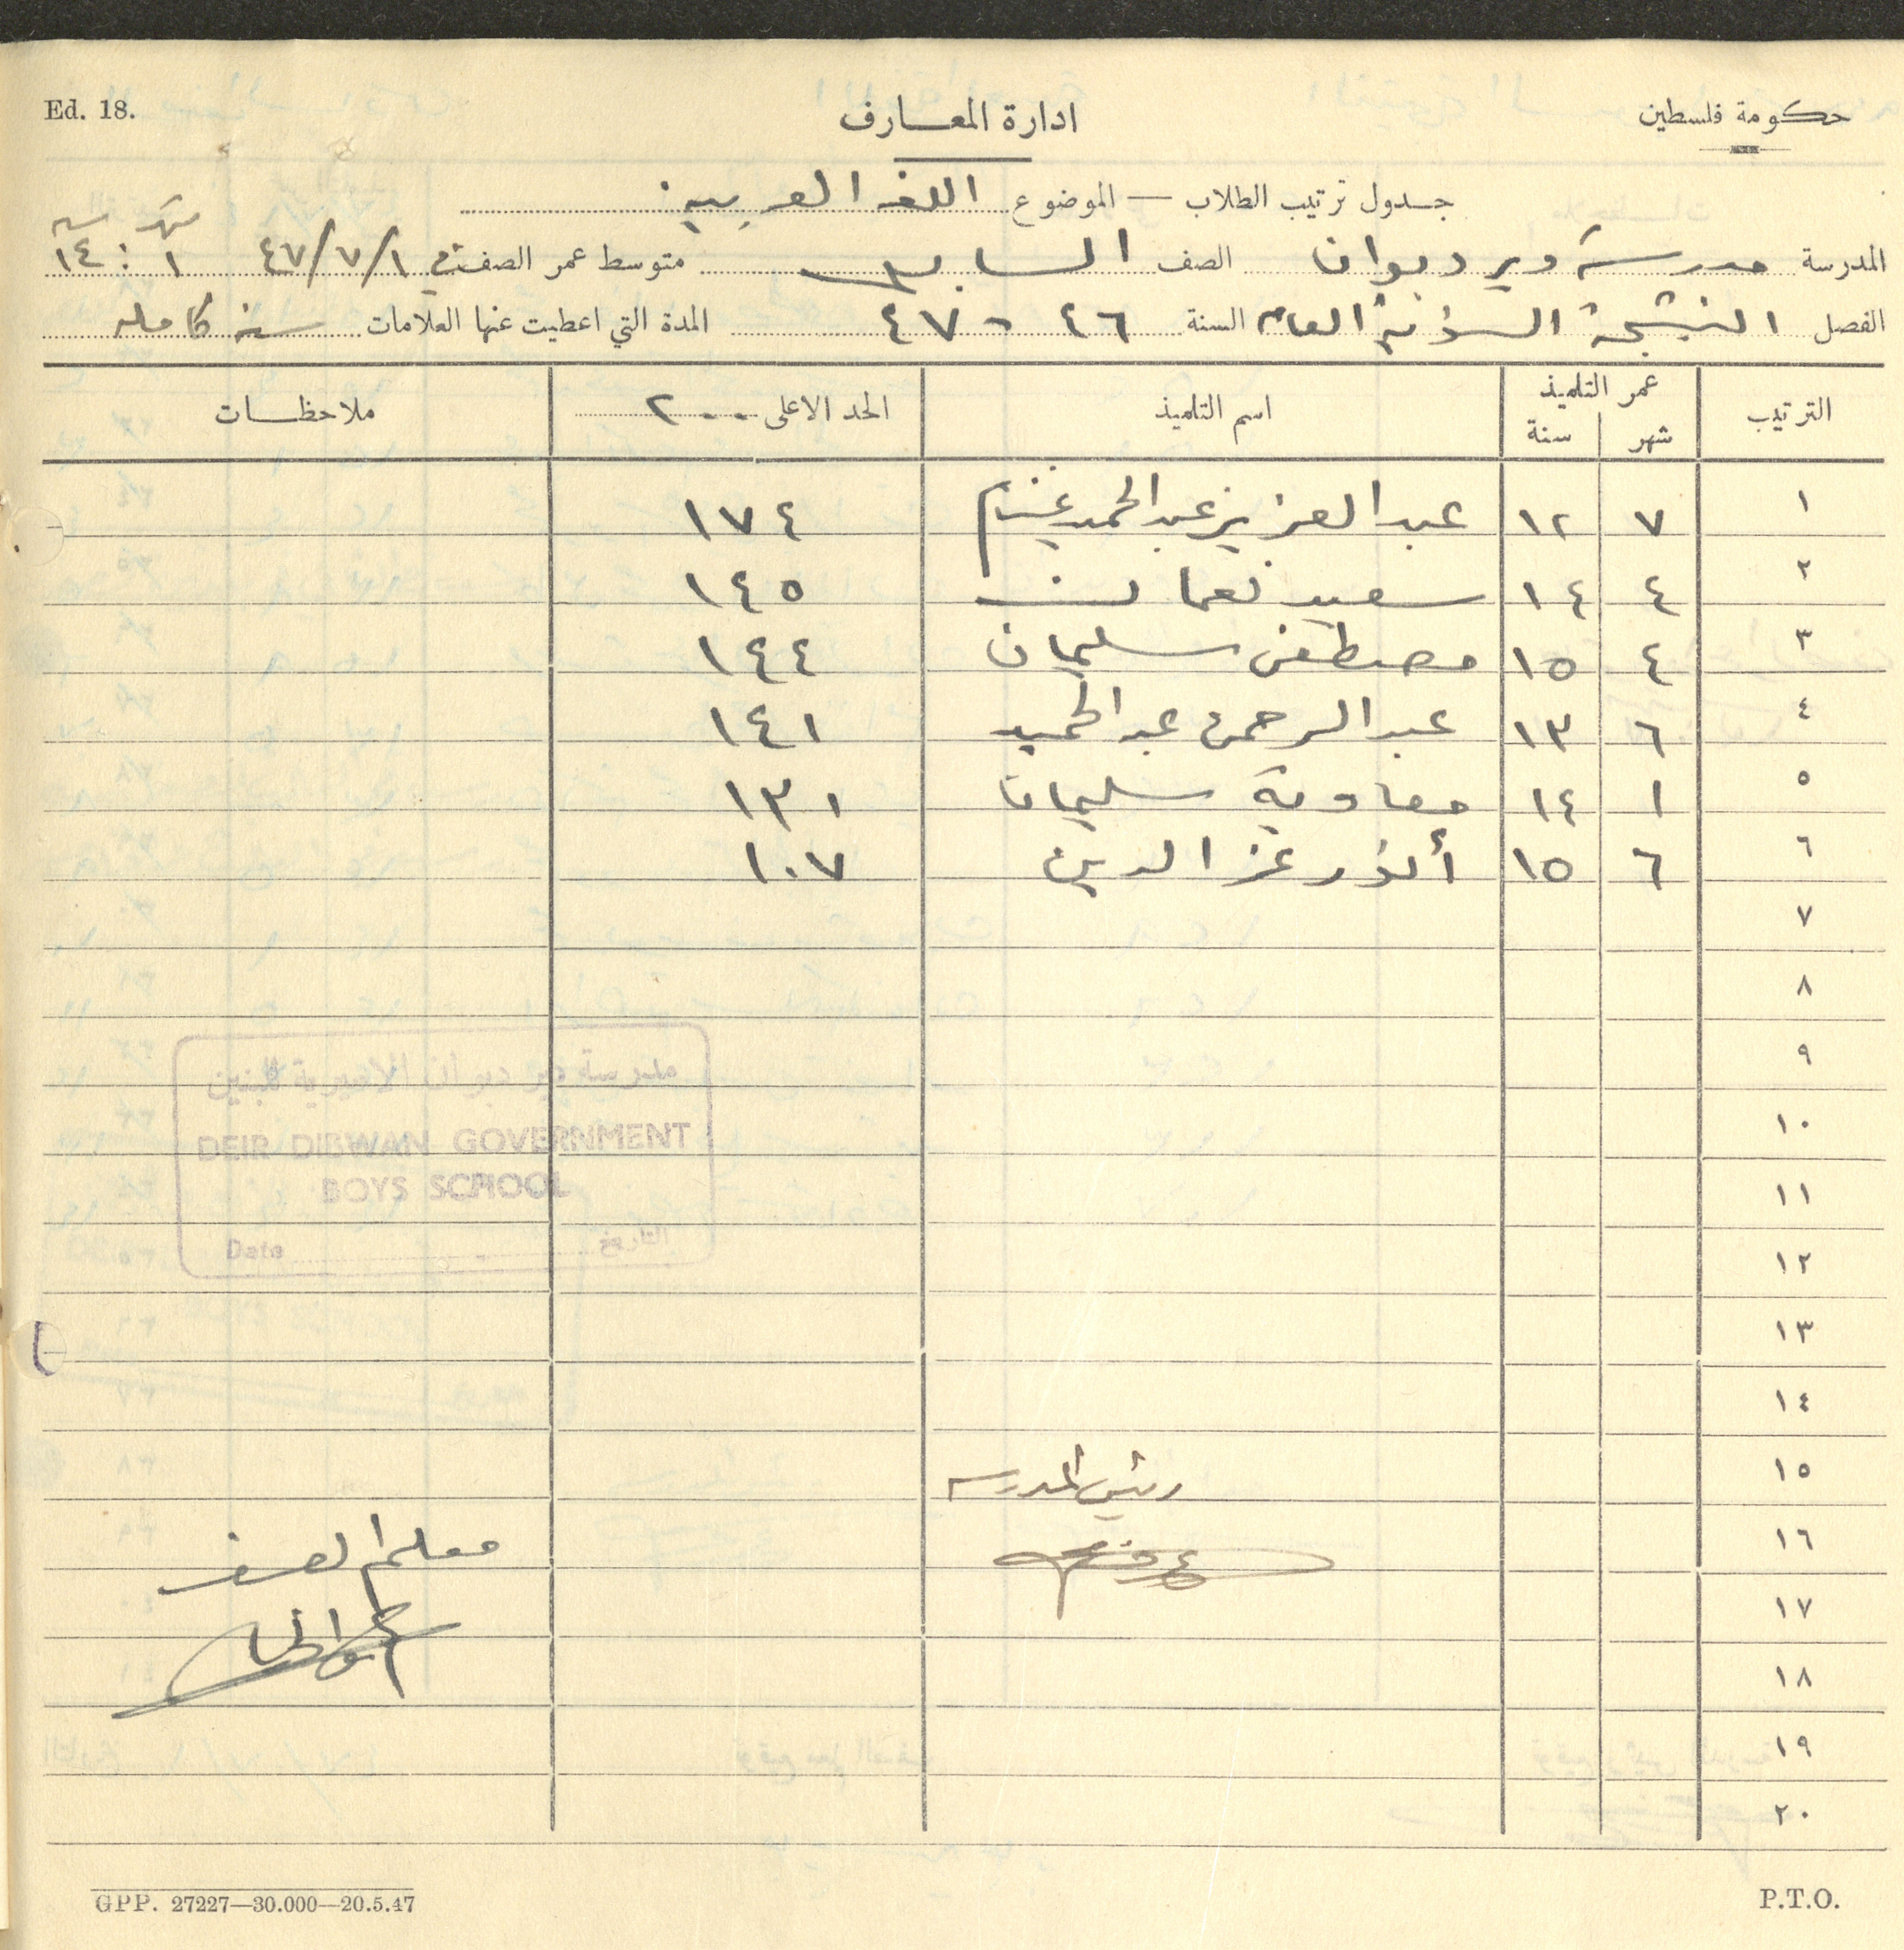 حكومة فلسطين
ادارة المعارف
Ed. 18.
جدول ترتيب الطلاب — الموضوع اللغه العربيه
المدرسة مدرسة دير ديوان الصف السابع متوسط عمر الصف في ٤٧/٧/١ شهر ١ : سنه ١٤
الفصل النتيجة السنوية العامه السنة ٤٦ - ٤٧ المدة التي اعطيت عنها العلامات سنه كامله
الترتيب عمر التلميذ شهر سنة اسم التلميذ الحد الاعلى ٢٠٠ ملاحظات
١ ٧ ١٢ عبد العزيز عبد الحميد غنيم ١٧٤
٢ ٤ ١٤ سعيد نعمان ١٤٥
٣ ٤ ١٥ مصطفى سليمان ١٤٤
٤ ٦ ١٣ عبد الرحمن عبد الحميد ١٤١
٥ ١ ١٤ معاوية سليمان ١٣١
٦ ٦ ١٥ أنور عز الدين ١٠٧
٧
٨
٩
١٠
١١
١٢
١٣
١٤
١٥
١٦
١٧
١٨
١٩
٢٠
مدرسة دير دبوان الاميرية للبنين
DEIR DIBWAN GOVERNMENT
BOYS SCHOOL
Date التاريخ
رئيس المدرسه
معلم الصف
GPP. 27227—30.000—20.5.47
P.T.O.